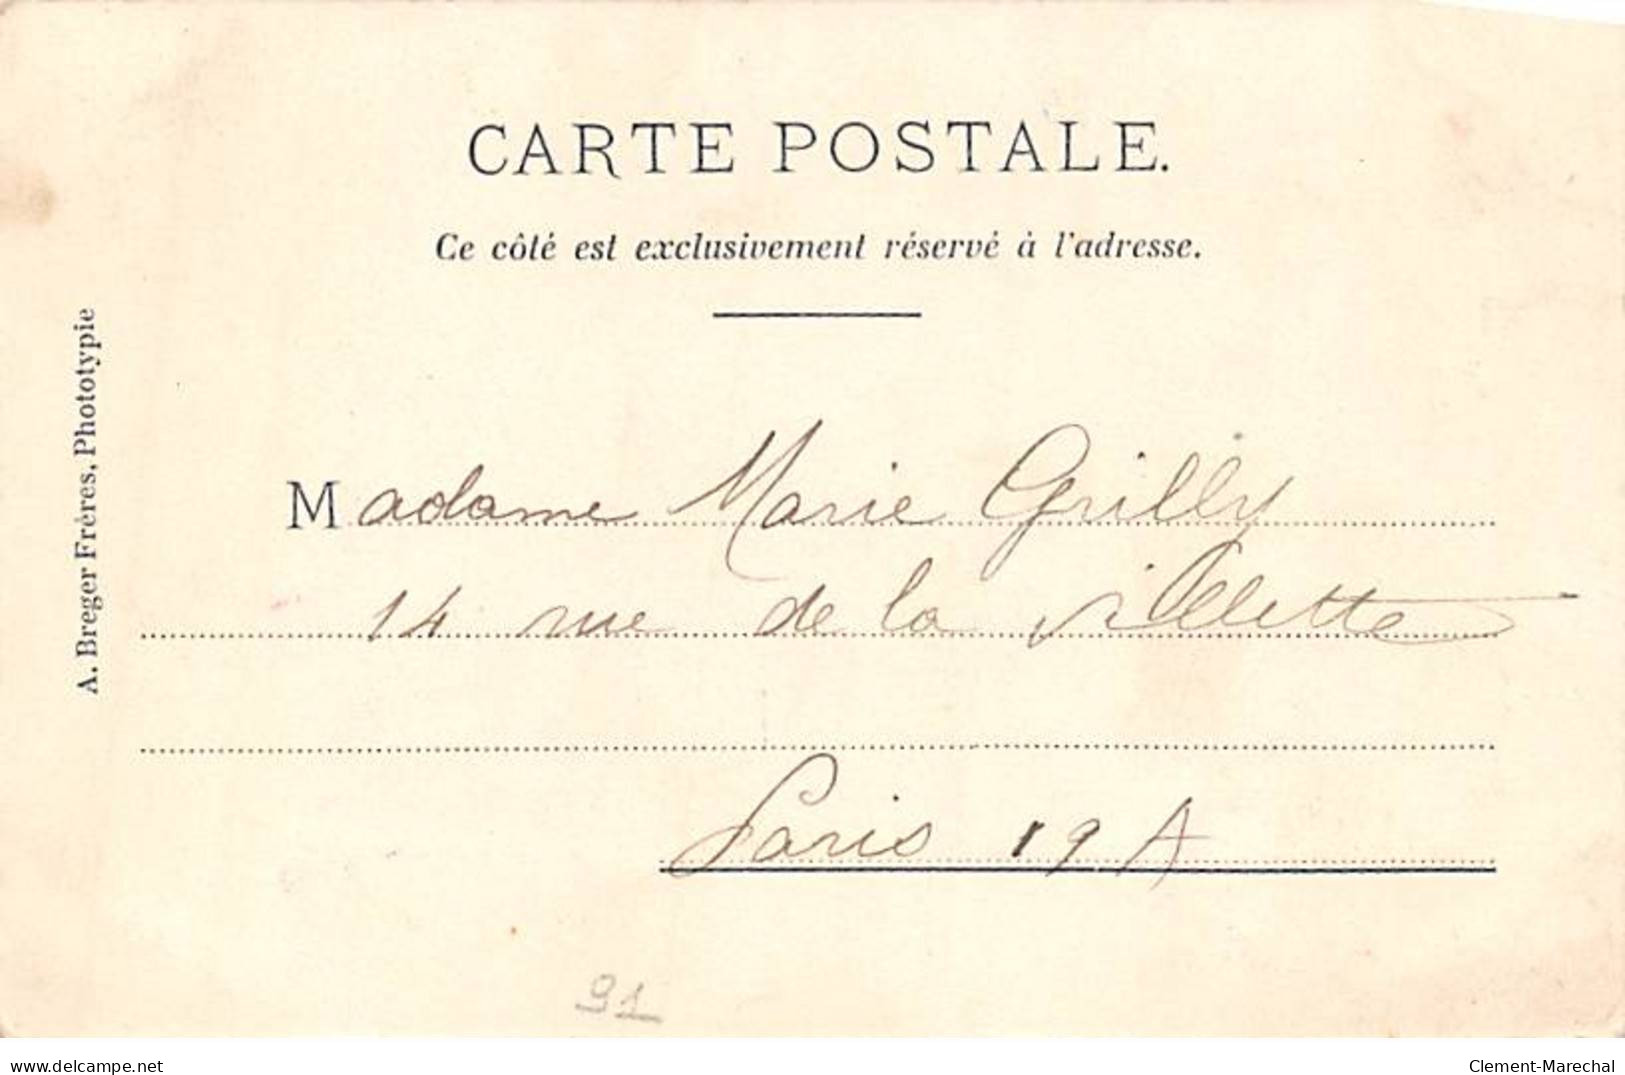 CARTE POSTALE.
Ce côté est exclusivement réservé à l'adresse.
A. Breger Frères, Phototypie
Madame Marie Grilly
14 rue de la villette
Paris 19 A
91
www.delcampe.net
Clement-Marechal